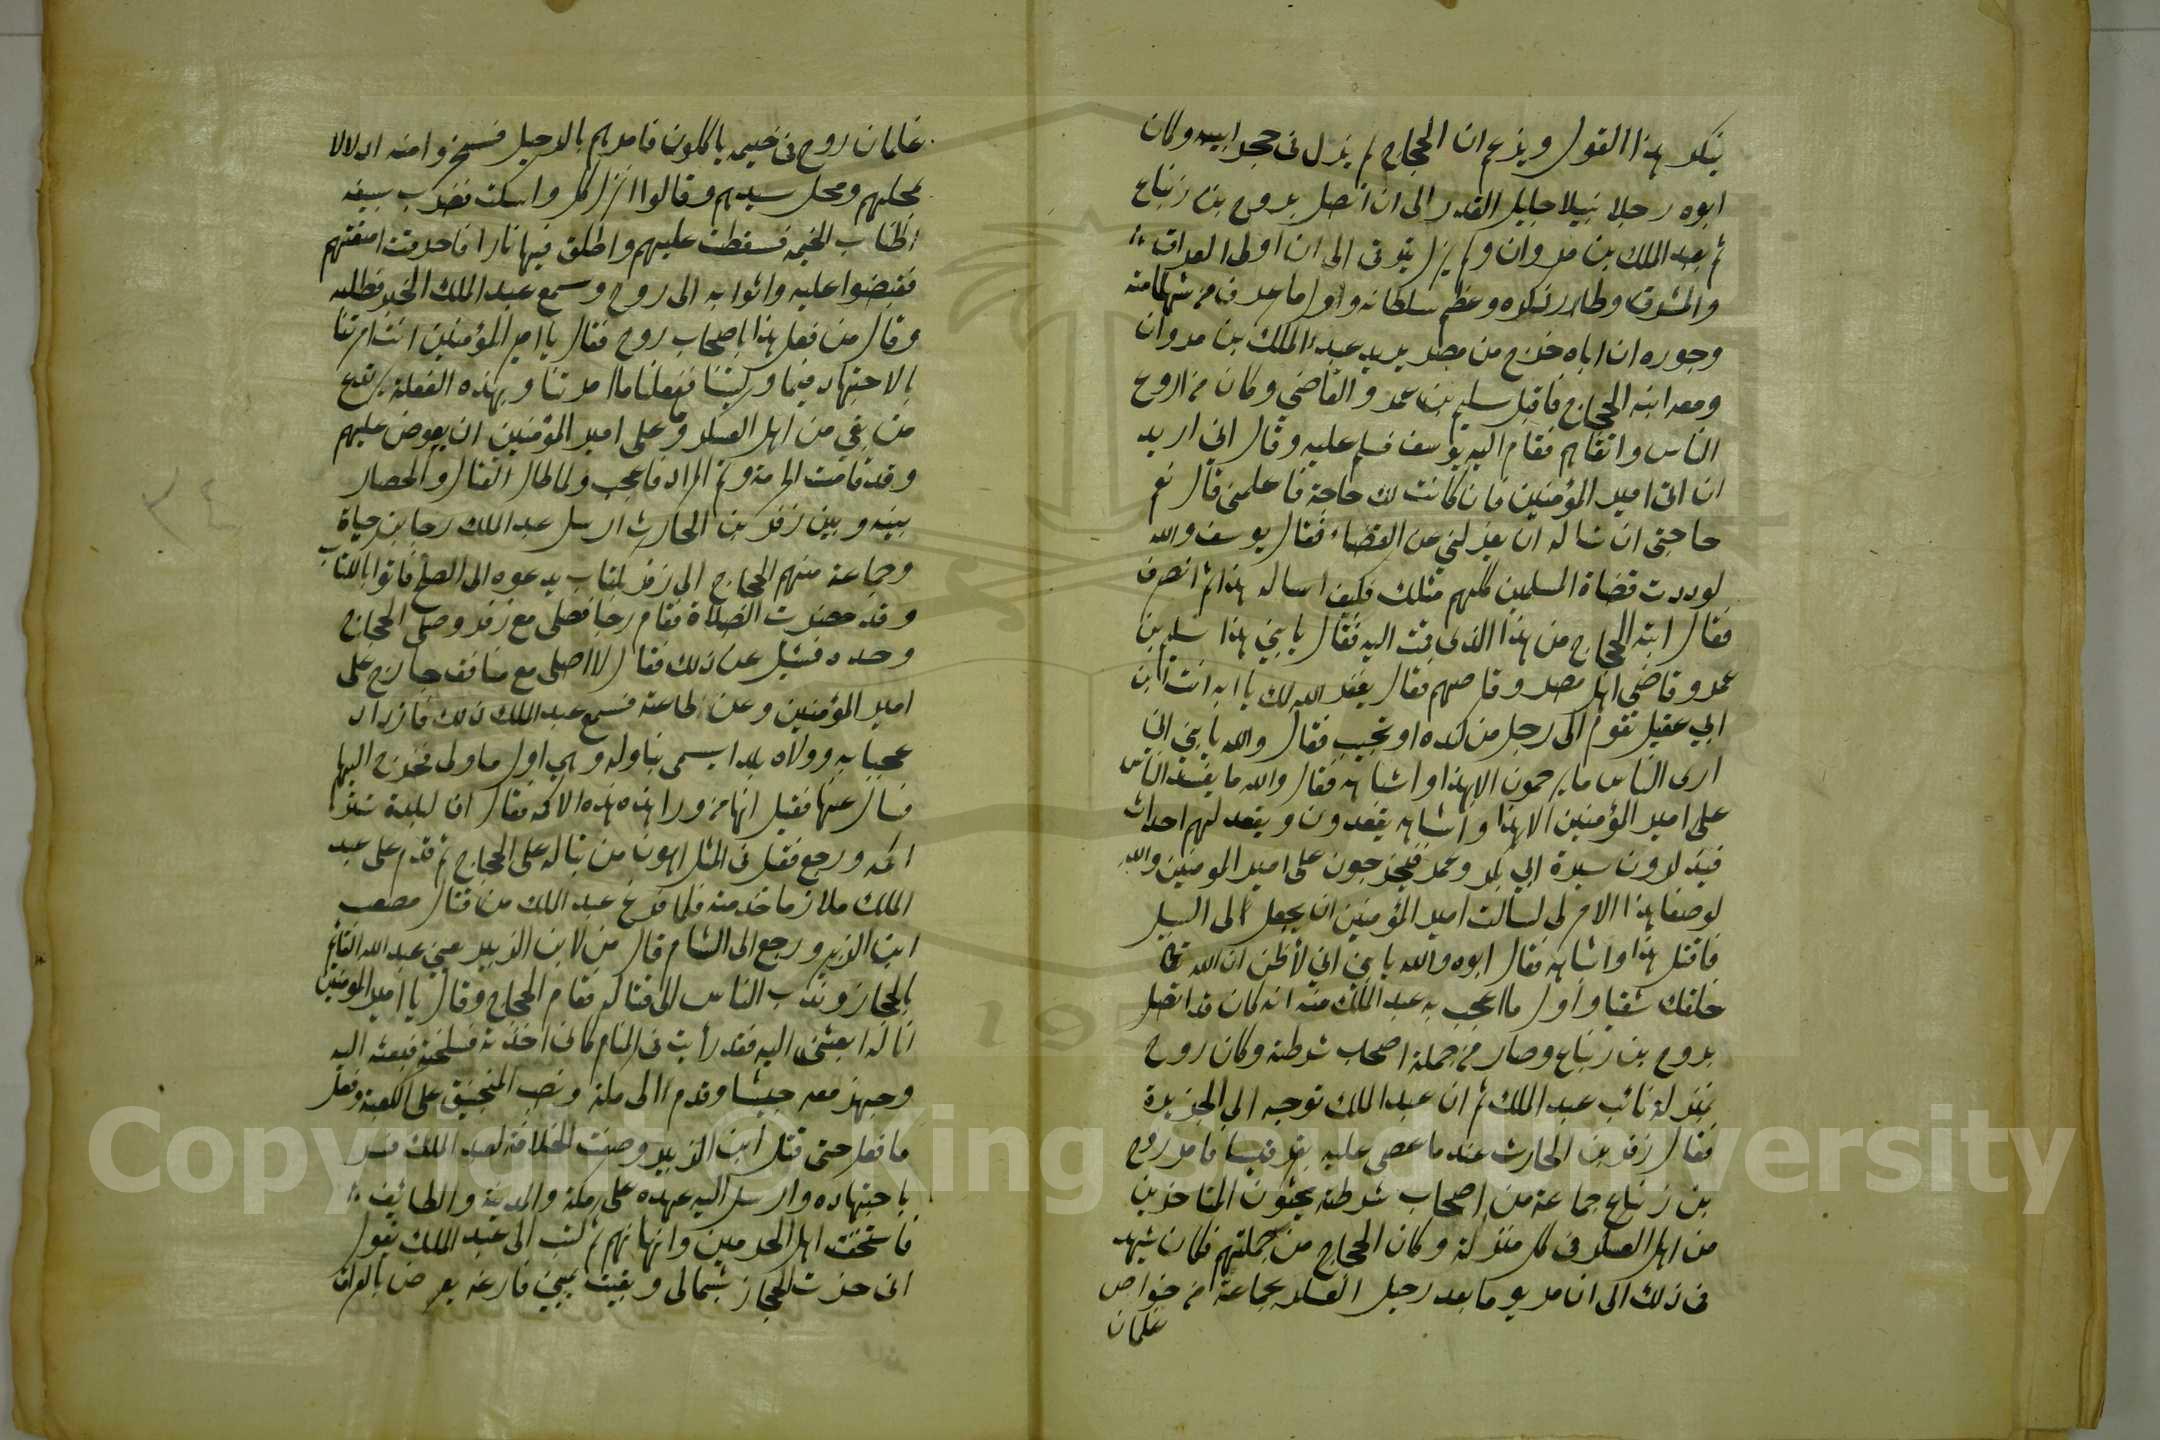 ينكر هذا القول ويزعم ان الحجاج لم يزل في حجر ابيه وكان
ابوه رجلا نبيلا جليل القدر الى ان اتصل بروح بن زنباع
ثم بعبد الملك بن مروان ولم يزل يترقى الى ان اولى العراق
والمشرق وطار ذكره وعظم سلطانه واول ما عرف من شهامته
وجوره ان اباه خرج من مصر يريد عبد الملك بن مروان
ومعه ابنه الحجاج فاقبل سليم بن عمرو القاضي وكان من اروع
الناس واتقاهم فقام اليه يوسف فسلم عليه وقال اني اريد
ان اتى امير المؤمنين فان كانت لك حاجة فاعلمنى قال نعم
حاجتى ان تساله ان يعزلني عن القضاء فقال يوسف والله
لوددت قضاة المسلمين كلهم مثلك فكيف اساله هذا ثم انصرف
فقال ابنه الحجاج من هذا الذى قمت اليه فقال يا بني هذا سليم بن
عمرو قاضي اهل مصر وقاصهم فقال يغفر الله لك يا ابه انت ابن
ابي عقيل تقوم الى رجل من كنده او تجيب فقال والله يا بني اني
ارى الناس ما يرحمون الا بهذا واشباهه فقال والله ما يفسد الناس
على امير المؤمنين الا هذا واشباهه يقعدون ويقعد لهم احداث
فيذكرون سيرة ابي بكر وعمر فيخرجون على امير المومنين والله
لو صفا هذا الامر لى لسالت امير المؤمنين ان يجعل لى السبيل
فاقتل هذا واشباهه فقال ابوه والله يا بني اني لأظن ان الله تعالى
خلقك شقيا واول ما اعجب به عبد الملك منه انه كان قد اتصل
بروح بن زنباع وصار من جملة اصحاب شرطته وكان روح
بمنزلة نائب عبد الملك ثم ان عبد الملك توجه الى الجزيرة
فقال زفر بن الحارث عند ما عصى عليه فامر روح
بن زنباع جماعة من اصحاب شرطته يحثون المتاخرين
من اهل العسكر في كل منزلة وكان الحجاج من جملتهم فكان شهد
في ذلك الى ان مر يوما بعد رحيل العسكر بجماعة من خواص
غلمان
غلمان روح في خيمه ياكلون فامرهم بالرحيل فسخروا منه ادلالا
بمحلهم ومحل سيدهم وقالوا انزل كل واسكت فضرب بسيفه
اطناب الخيمه فسقطت عليهم واطلق فيها نارا فاحرقت امتعتهم
فقبضوا عليه واتوا به الى روح وسمع عبد الملك الخبر فطلبه
وقال من فعل هذا باصحاب روح فقال يا امير المؤمنين انت امرتنا
بالاجتهاد فيما وليتنا ففعلنا ما امرتنا وبهذه الفعلة يرتدع
من بقي من اهل العسكر وما على امير المؤمنين ان يعوض عليهم
وقد قامت الحرمة وتم المراد فاعجب ولما طال القتال والحصار
بينه وبين زفر بن الحارث ارسل عبد الملك رجا بن حياة
وجماعة منهم الحجاج الى زفر بكتاب يدعوه الى الصلح فاتوا بالكتاب
وقد حضرت الصلاة فقام رجا فصلى مع زفر وصلى الحجاج
وحده فسئل عن ذلك فقال لا اصلى مع منافق خارج على
امير المؤمنين وعن طاعته فسمع عبد الملك ذلك فازداد
عجبا به وولاه بلدا يسمى تباوله وهي اول ما ولى فخرج اليها
فسال عنها فقيل انها من ورا هذه الاكمه فقال ان لبلدة تسترها
اكمه ورجع فقيل في المثل اهون من تباله على الحجاج ثم قدم على عبد
الملك ملازما خدمته فلما فرغ عبد الملك من قتال مصعب
ابن الزبير ورجع الى الشام قال من لابن الزبير يعني عبد الله القائم
بالحجاز وندب الناس الى قتاله فقام الحجاج وقال يا امير المومنين
انا له ابعثنى اليه فقد رأيت في المنام كانى اخذته فسلخته فبعثه اليه
وجهز معه جيشا وقدم الى مكة ونصب المنجنيق على الكعبة وفعل
ما فعل حتى قتل ابن الزبير وصفت الخلافة لعبد الملك فسر
باجتهاده وارسل اليه عهده على مكة والمدينة والطائف
فاستخف اهل الحرمين واهانهم ثم كتب الى عبد الملك يقول
انى حزت الحجاز بشمالى وبقيت يميني فارغه يعرض بالعراق